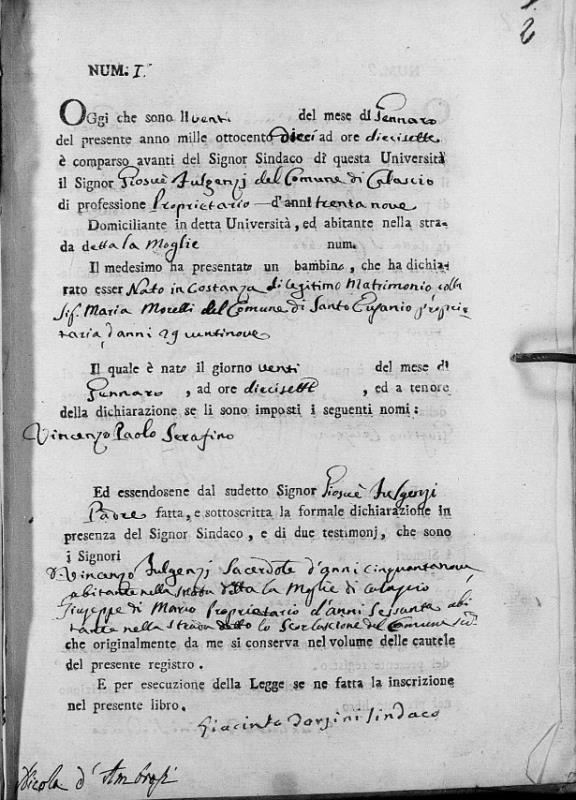 2
NUM. I.
OGgi che sono li venti del mese di Gennaro
del presente anno mille ottocento dieci ad ore diecisette
è comparso avanti del Signor Sindaco di questa Università
il Signor Giosuè Fulgenzj del Comune di Calascio
di professione Proprietario d'anni trentanove
Domiciliante in detta Università, ed abitante nella stra-
da detta la Moglie num.
Il medesimo ha presentato un bambino, che ha dichia-
rato esser Nato in Costanza di legitimo Matrimonio colla
Sig. Maria Morelli del Comune di Santo Eusanio proprie-
taria, d'anni 29 ventinove
Il quale è nato il giorno venti del mese di
Gennaro, ad ore diecisette, ed a tenore
della dichiarazione se li sono imposti i seguenti nomi:
Vincenzo Paolo Serafino
Ed essendosene dal sudetto Signor Giosuè Fulgenzj
Padre fatta, e sottoscritta la formale dichiarazione in
presenza del Signor Sindaco, e di due testimonj, che sono
i Signori
D. Vincenzo Fulgenzj Sacerdote d'anni cinquantanove
abitante nella strada detta la Moglie di Calascio
Giuseppe di Mario Proprietario d'anni Sessanta abi-
tante nella strada detto lo del Comune
che originalmente da me si conserva nel volume delle cautele
del presente registro.
E per esecuzione della Legge se ne fatta la inscrizione
nel presente libro.
Giacinto Sindaco
Nicola d'Ambrosj